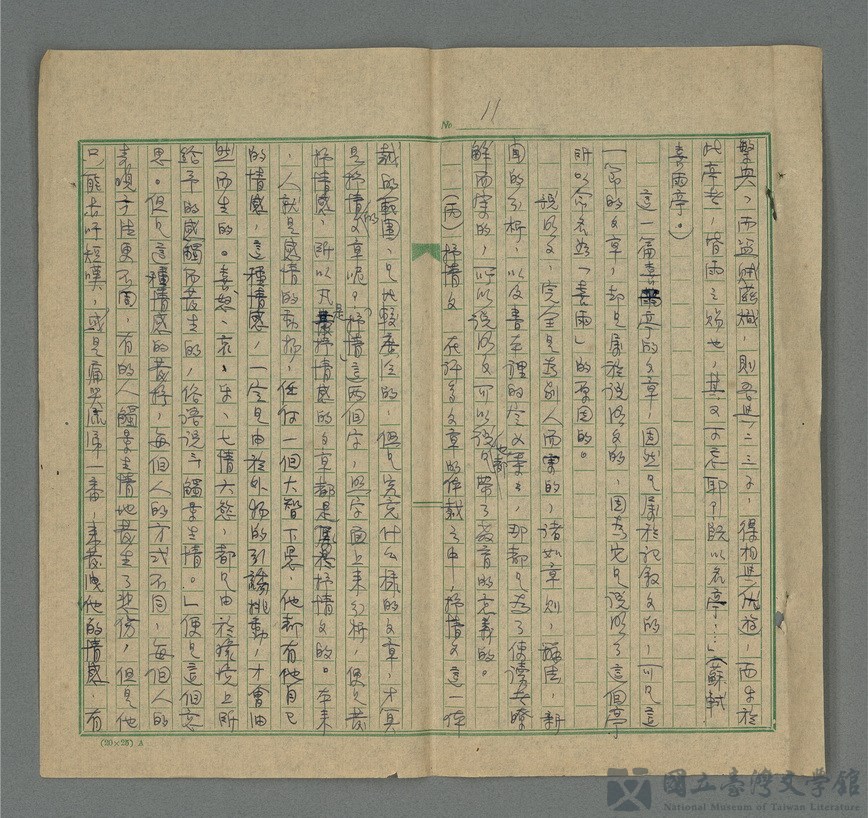 No. 11
繁興，而盜賊滋熾，則吾與二三子，得相與優遊，而樂於
此亭者，皆雨之賜也，其又可忘耶？既以名亭…」（蘇軾
喜雨亭。）
這一篇喜雨亭的文章，固然是屬於記敘文的，可是這
一節的文章，却是屬於說明文的，因為它是說明了這個亭
所以命名為「喜雨」的原因的。
說明文，完全是為別人而寫的，諸如章則，辦法，新
聞的分析，以及書本裡的定義等等，那都是為了使讀者瞭
解而寫的，所以說明文可以說他都是帶了教育的意義的。
（丙）抒情文 在許多文章的體裁之中，抒情文這一體
裁的範圍，是比較廣泛的，但是究竟什么樣的文章，才算
是抒情的文章呢？「抒情」這兩個字，照字面上來分析，便是發
抒情感，所以凡是抒情感的文章都是屬於抒情文的。本來
，人就是感情的動物，任何一個大智下愚，他都有他自己
的情感，這種情感，一定是由於外物的引誘挑動，才會由
然而生的。喜怒、哀、樂、七情六慾，都是由於環境上所
給予的感觸而發生的，俗語說「觸景生情。」便是這個意
思。但是這種情感的發抒，每個人的方式不同，每個人的
表現方法更不同，有的人觸景生情地發生了悲傷，但是他
只能長吁短嘆，或是痛哭流涕一番，來發洩他的情感，有
(20×25) A
國立臺灣文學館
National Museum of Taiwan Literature